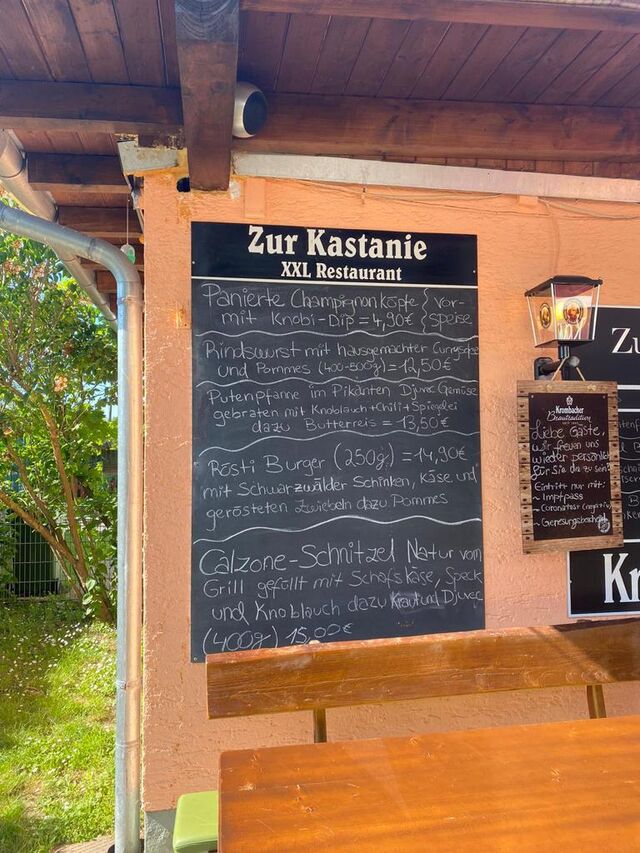 Zur Kastanie
XXL Restaurant
Panierte Champignonköpfe { Vor-
mit Knobi-Dip = 4,90€ { speise
Rindswurst mit hausgemachter Currysoße
und Pommes (400-500g) = 12,50€
Putenpfanne im Pikanten Djuvec Gemüse
gebraten mit Knoblauch+Chili+Spiegelei
dazu Butterreis = 13,50€
Rösti Burger (250g) = 14,90€
mit Schwarzwälder Schinken, Käse und
gerösteten zwiebeln dazu Pommes
Calzone-Schnitzel Natur vom
Grill gefüllt mit Schafskäse, Speck
und Knoblauch dazu Kraut und Djuvec
(400g) 15,00€
Zu
Krombacher
Brautradition
Liebe Gäste,
wir freuen uns
wieder persönlich
für Sie da zu sein!
Eintritt nur mit:
~ Impfpass
~ Coronatest (negativ)
~ Genesungsbescheid
Kr